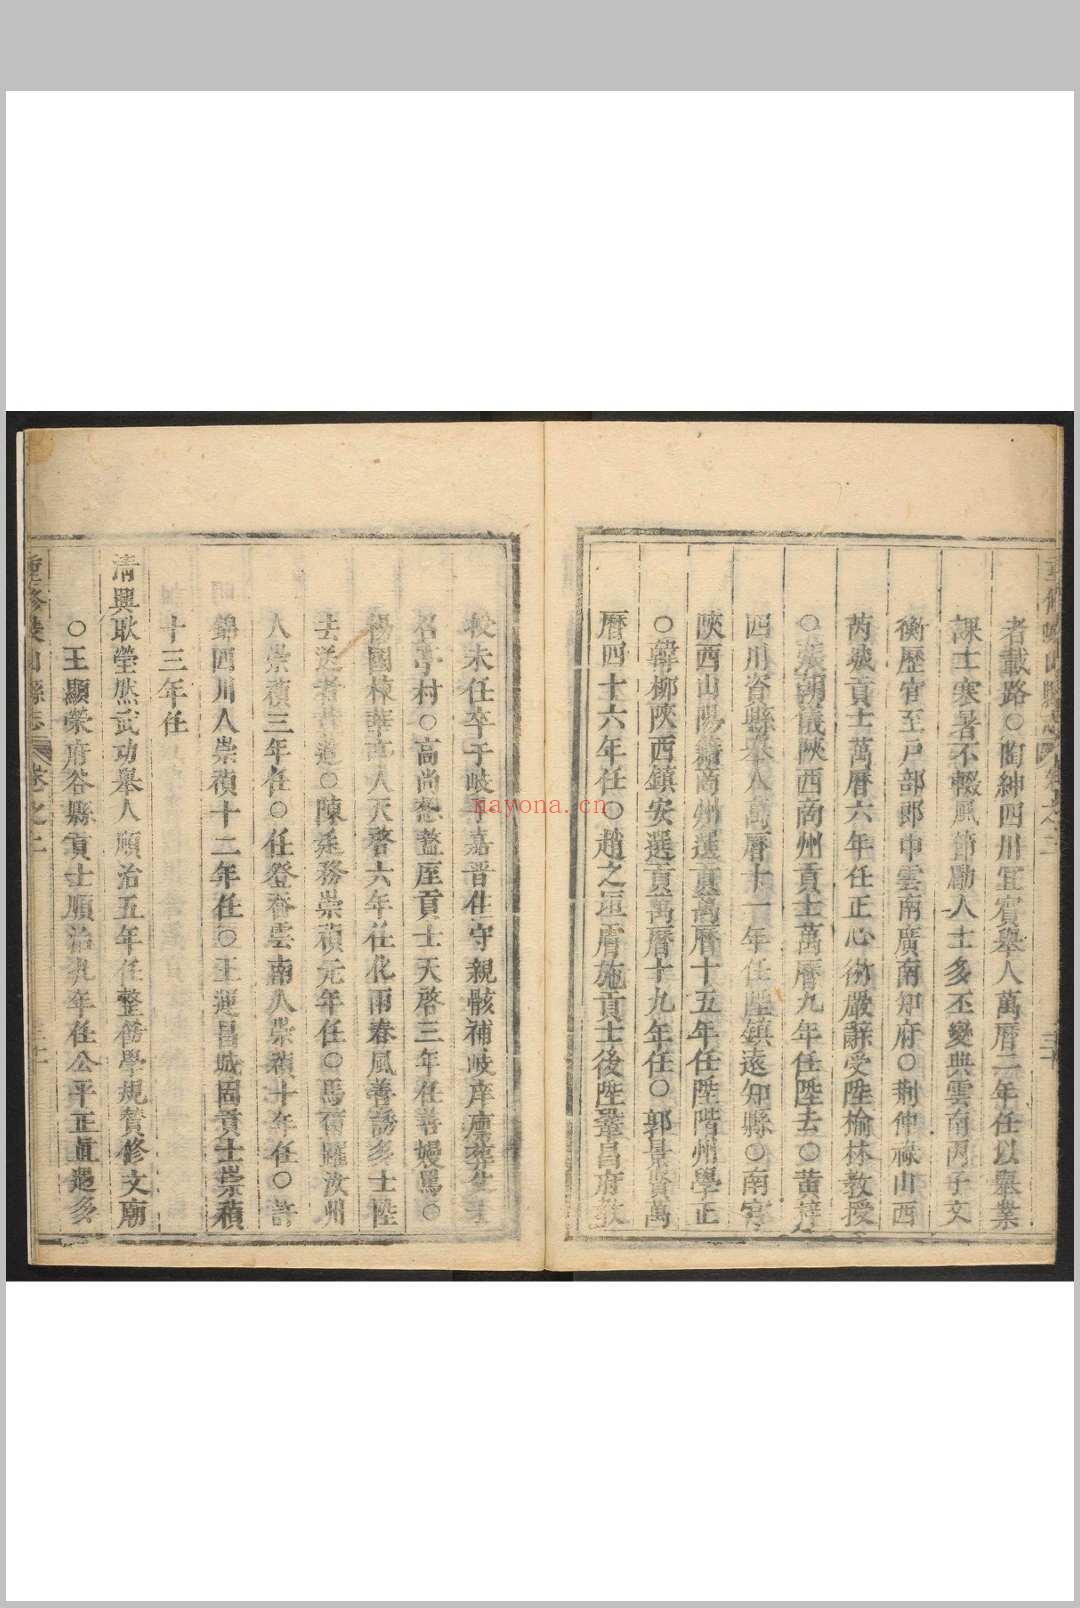 者載路○陶紳四川宜賓舉人萬曆二年任以舉業
課士寒暑不輟風節勵人士多丕變典雲南丙子文
衡歷官至戶部郎中雲南廣南知府○荆伸祿山西
芮城貢士萬曆六年任正心術嚴辭受陞榆林教授
○張朝儀陝西商州貢士萬曆九年任陞去○黃
四川資縣舉人萬曆十一年任陞鎮遠知縣○南宮
陝西山陽籍商州選貢萬曆十五年任陞階州學正
○韓柳陝西鎮安選貢萬曆十九年任○郭景賢萬
曆四十六年任○趙之垣膚施貢士後陞鞏昌府教
較未任卒于岐子嘉晋住守親骸補岐庠廩葬生
名亭村○高尚愁盩厔貢士天啓三年任善嫚罵○
楊國棟華亭人天啓六年任化雨春風善誘多士陞
去送者載道○陳廷務崇禎元年任○馬 汝州
人崇禎三年任○任登 雲南人崇禎十年任○許
錦四川人崇禎十二年任○王運昌城固貢士崇禎
十三年任
清興耿瑩然武功舉人順治五年任整飭學規贊修文廟
○王顯榮府谷縣貢士順治九年任公平正直遇多
重修岐山縣志 卷之二
nayona.cn